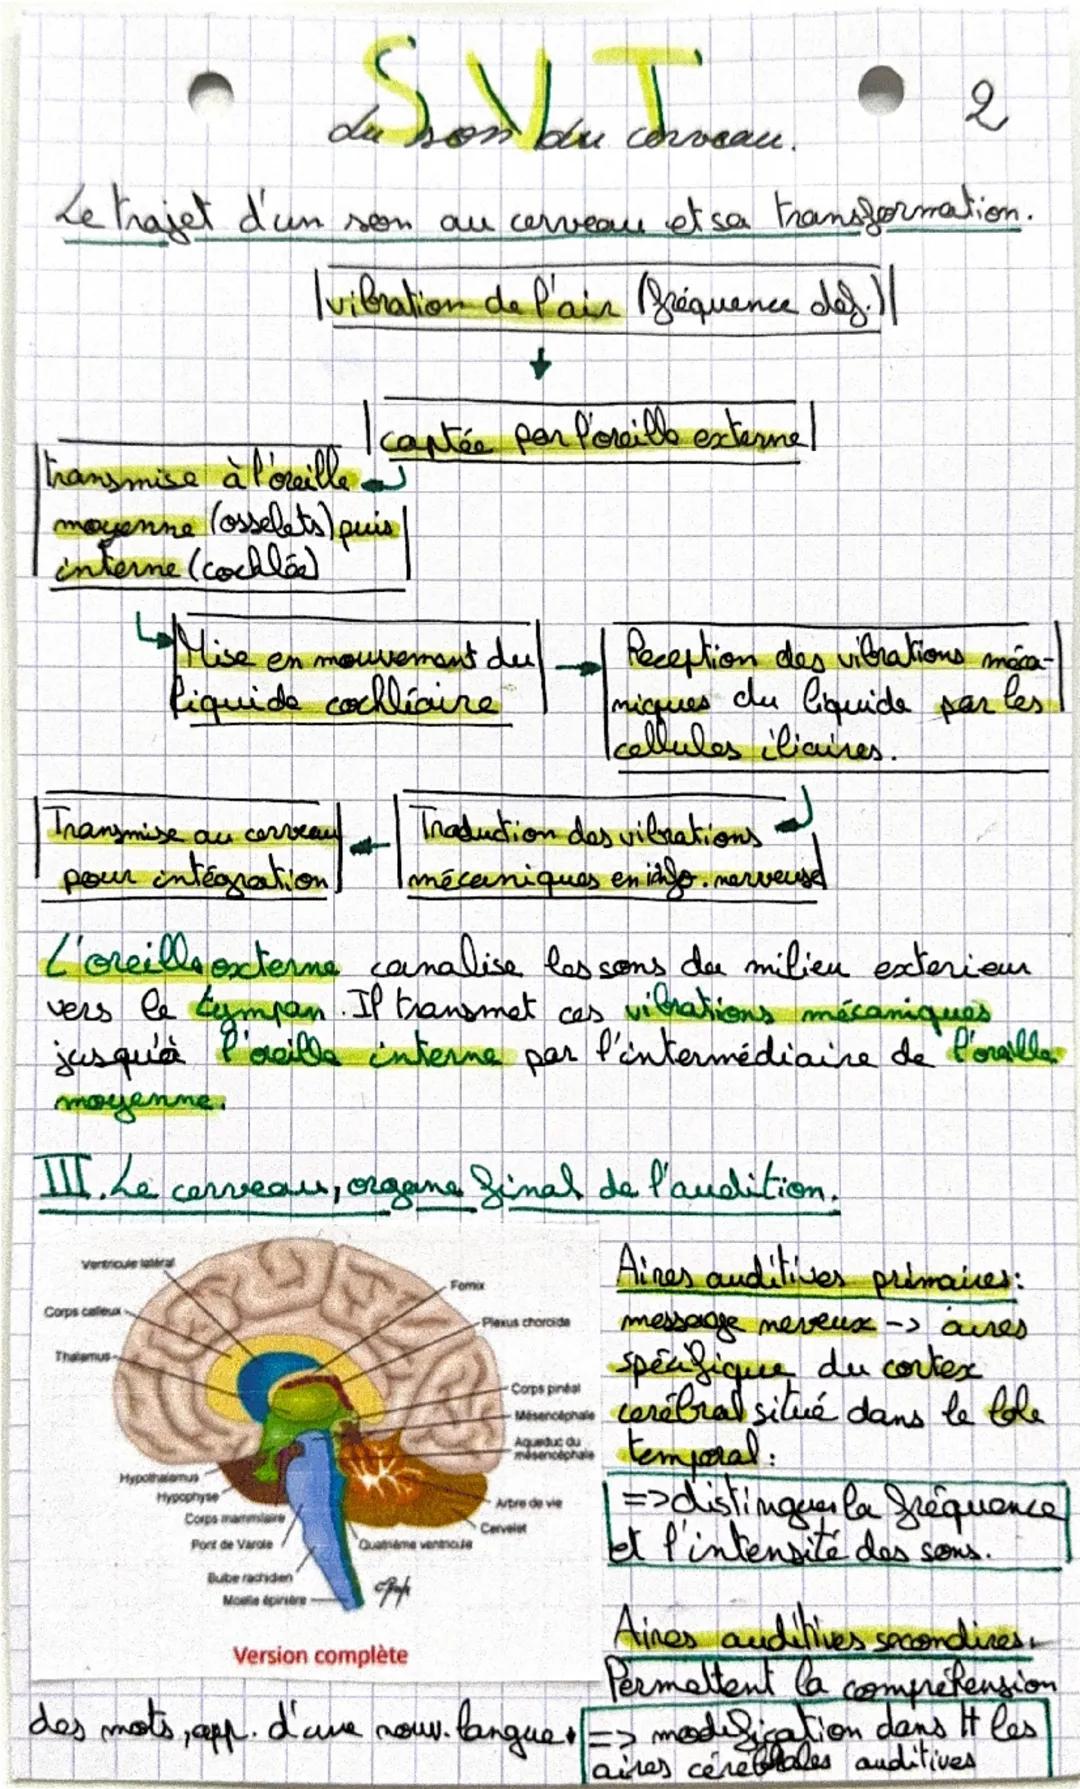 SVT
du son du cerveau.
2
Le trajet d'un son au cerveau et sa transformation.
vibration de l'air (fréquence def.)
captée par l'oreille externe
transmise à l'oreille
moyenne (osselets) puis
interne (cochlée)
Mise en mouvement du
liquide cochléaire
Reception des vibrations méca-
niques du liquide par les
cellules iliaires.
Traduction des vibrations
mécaniques en info. nerveuse
Transmise au cerveau
pour intégration
L'oreille externe canalise les sons du milieu exterieur
vers le tympan. Il transmet ces vibrations mécaniques
jusqu'à l'oreille interne par l'intermédiaire de l'oreille
moyenne.
III. Le cerveau, organe final de l'audition.
Ventricule latéral
Corps calleux
Thalamus
Fornix
Plexus choroide
Corps pinéal
Mésencéphale
Aqueduc du
mésencéphale
Arbre de vie
Cervelet
Quatrième ventricule
Hypothalamus
Hypophyse
Corps mammilaire
Pont de Varole
Bulbe rachidien
Moelle épinière
Version complète
Aires auditives primaires:
message nerveux -> aires
spécifique du cortex
cérébral situé dans le lobe
temporal:
=> distinguer la fréquence
et l'intensité des sons.
Aires auditives secondires.
Permettent la compréhension
des mots, app. d'une nouv. langue.
=> modification dans tt les
aires cérébrales auditives